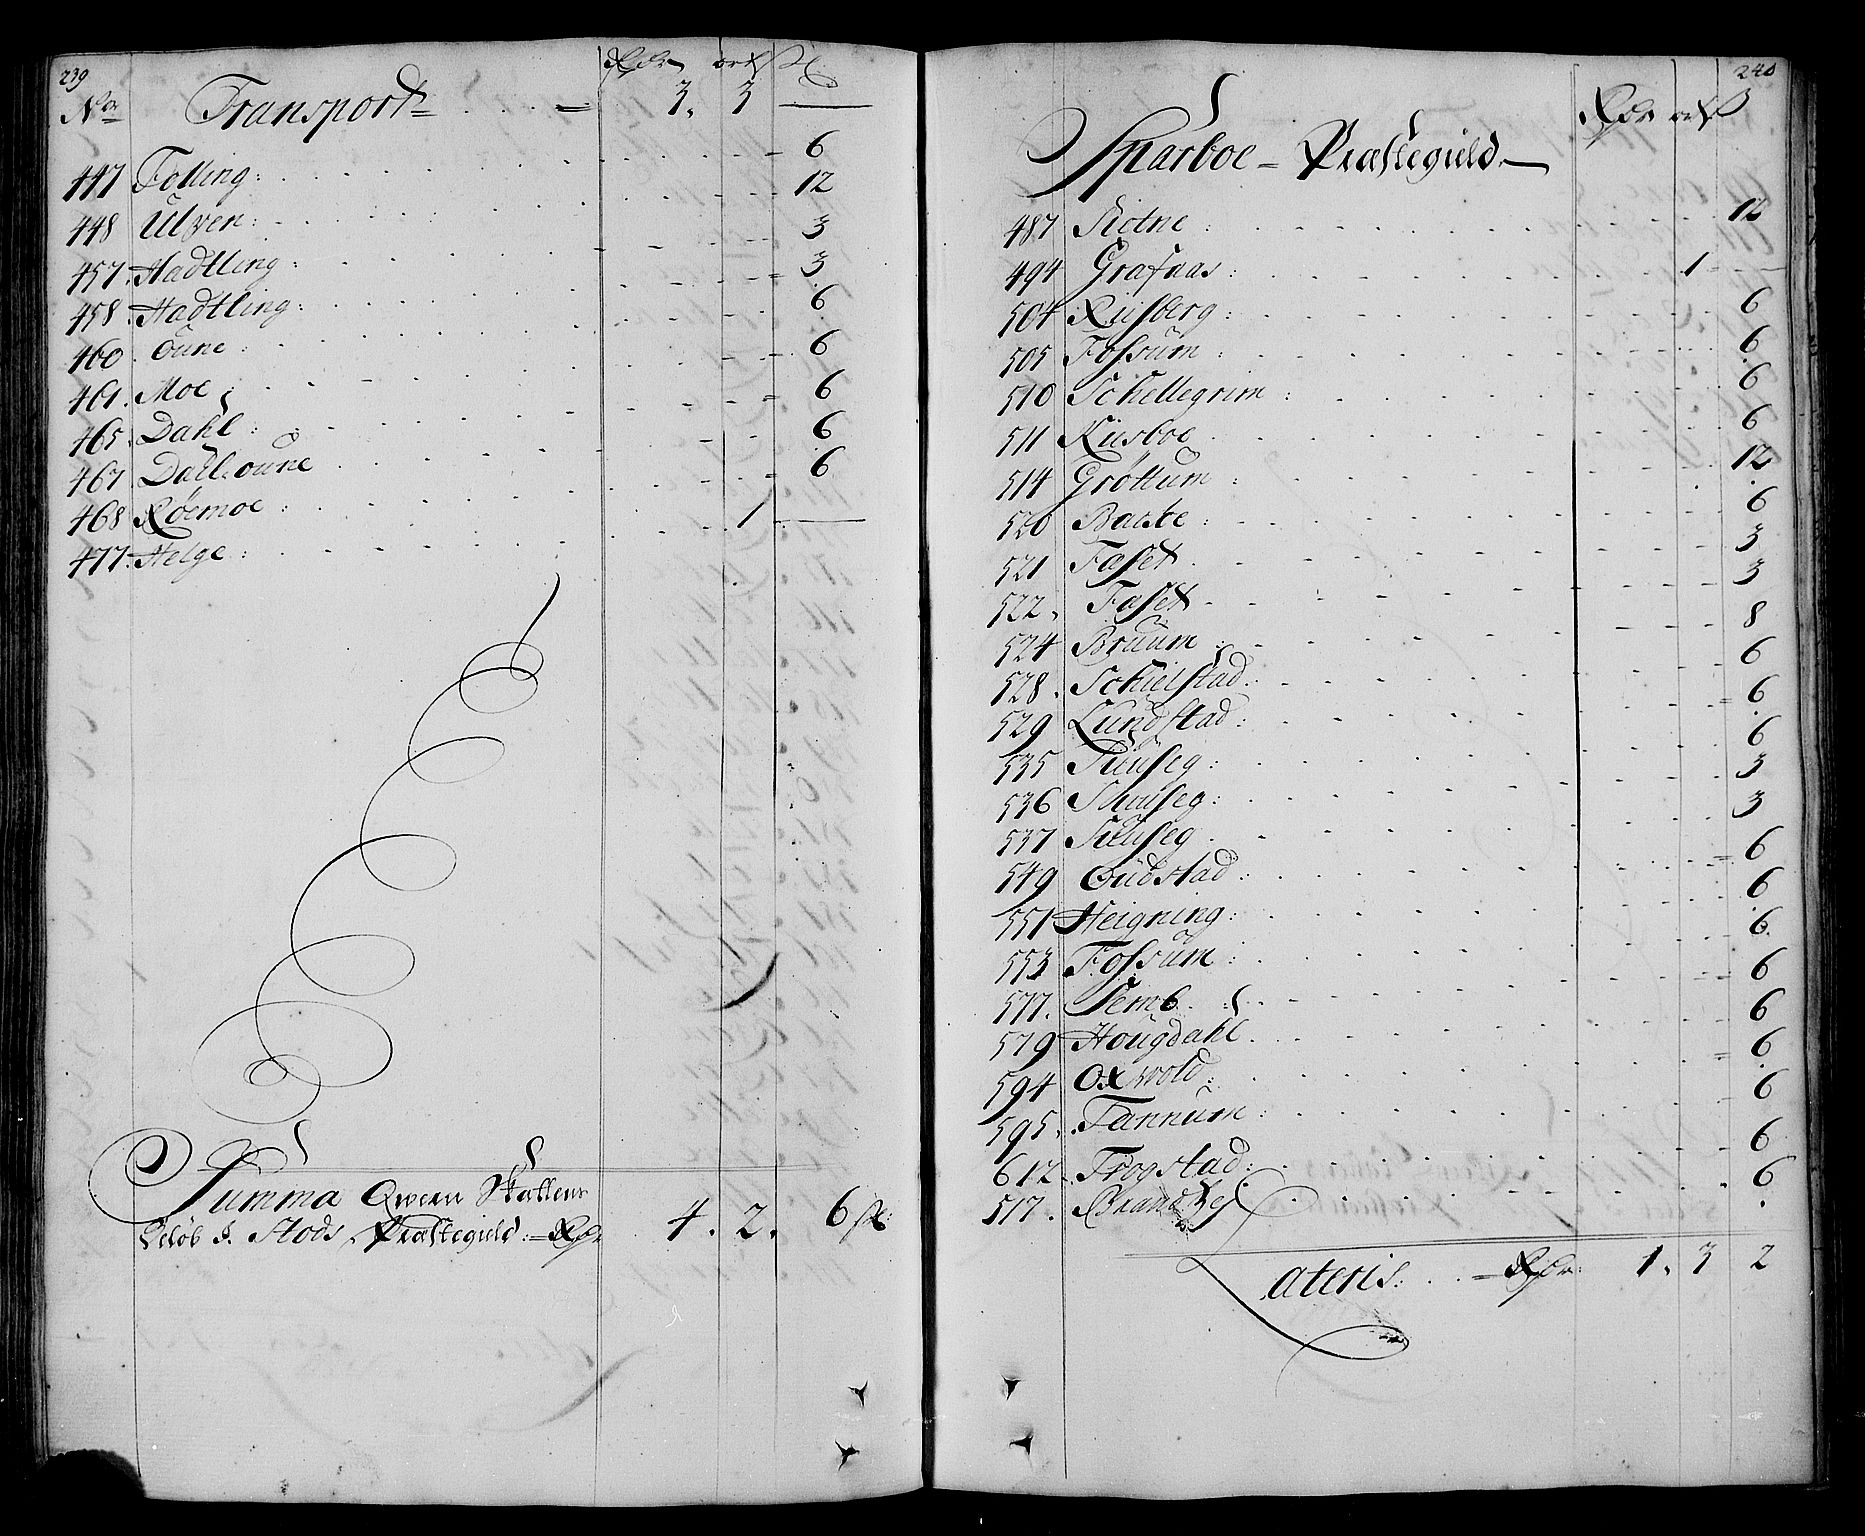 239
Rdr ort ß
No Transport 3. 3 —
447 Folling: 6
448 Ulven: 12
457. Hadtling: 3
458. Hadtling: 3
460. Oune: 6
461. Moe: 6
465. Dahl: 6
467 Dahl oune 6
468 Røemoe: 6
477. Helge: 1 —
Summa Qvern Skatten
Beløb i Stods Præstegield: Rdr 4. 2. 6 ß:
240
Rdr ort ß
Sparboe Præstegield
487 Skotne: 12
494 Grafnas: 1
504 Riisberg: 6
505 Fossum: 6
510 Schellegrim: 6
511 Riisboe 6
514 Grøttum: 12
520 Bache: 6
521 Faset. 3
522. Faset 3
524 Bruum: 8
528. Schielstad: 6
529 Lundstad: 6
535 Suuseg: 6
536 Suuseg: 3
537 Suuseg 3
549 Gudstad: 6
551 Heigning: 6
553 Fossum: 6.
577. Semb. 6
579 Hougdahl 6
594 Oxwold: 6
595. Tannum: 6
612 Frogstad: 6
517. Brandheg 6
Lateris: Rdr: 1. 3 2